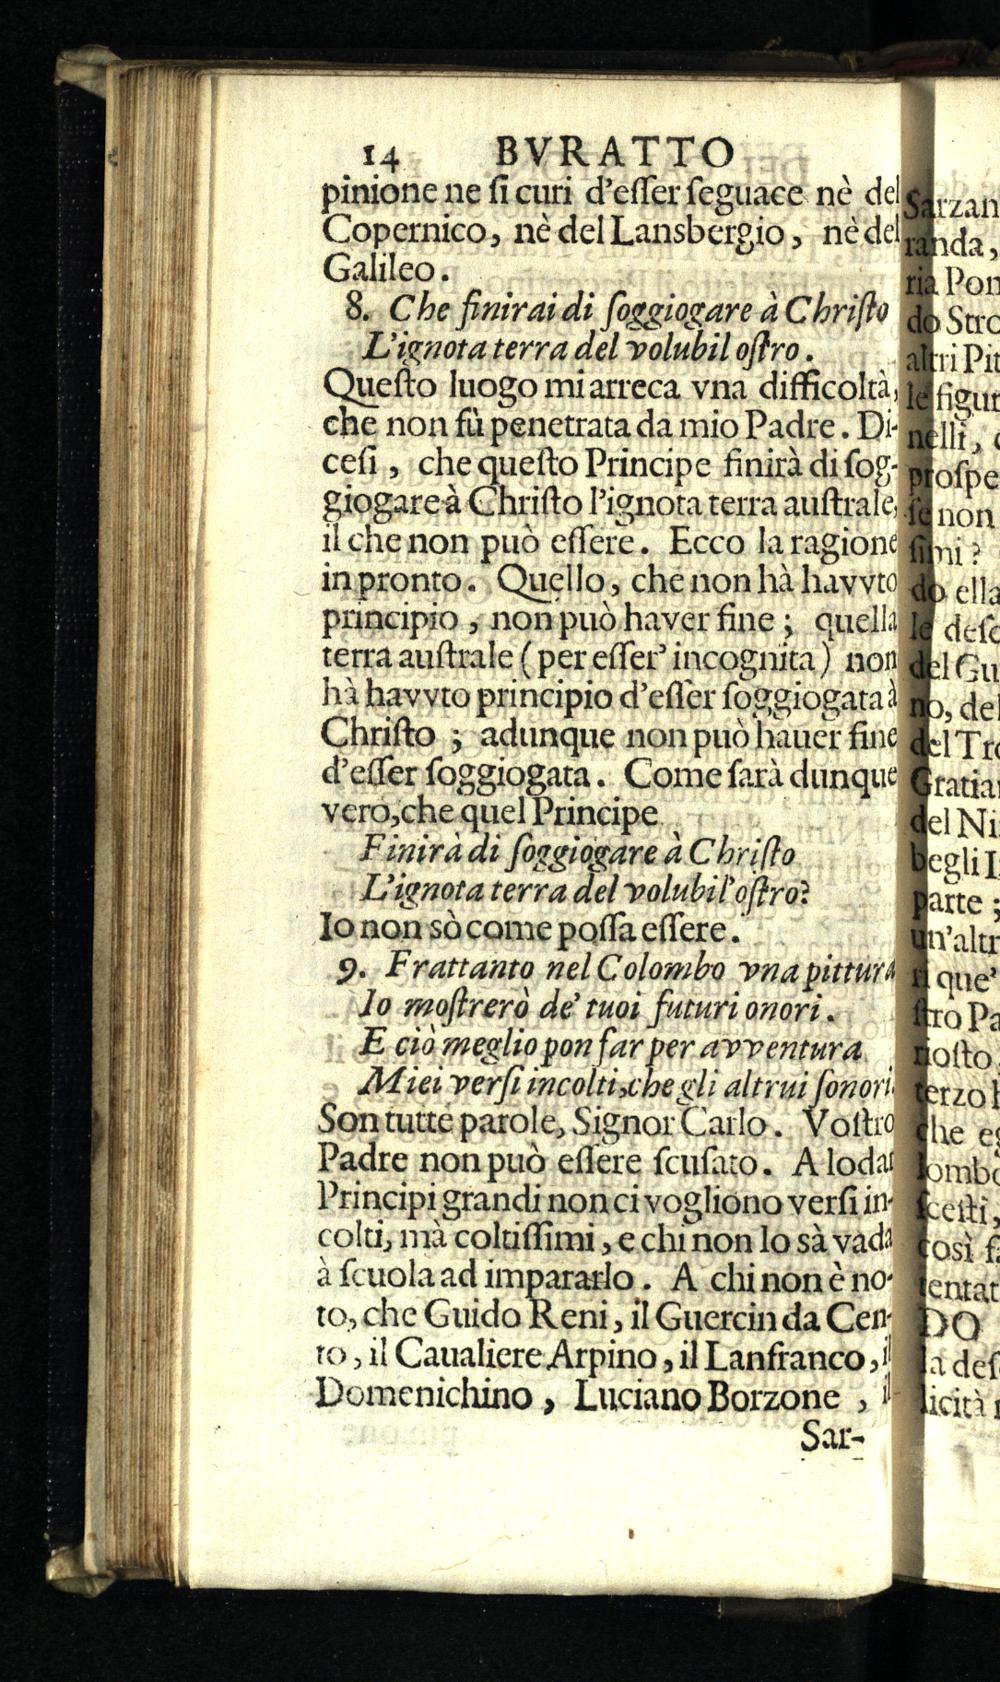 14 BVRATTO
pinione ne ſi curi d'eſſer ſeguace nè del
Copernico, nè del Lansbergio, nè del
Galileo.
8. Che finirai di ſoggiogare à Chriſto
L'ignota terra del volubil oſtro.
Queſto luogo mi arreca vna difficoltà,
che non fù penetrata da mio Padre. Di-
ceſi, che queſto Principe finirà di ſog-
giogare à Chriſto l'ignota terra auſtrale,
il che non può eſſere. Ecco la ragione
in pronto. Quello, che non hà havvto
principio, non può haver fine; quella
terra auſtrale (per eſſer' incognita) non
hà havvto principio d'eſſer ſoggiogata à
Chriſto; adunque non può hauer fine
d'eſſer ſoggiogata. Come ſarà dunque
vero, che quel Principe
Finirà di ſoggiogare à Chriſto
L'ignota terra del volubil'oſtro?
Io non sò come poſſa eſſere.
9. Frattanto nel Colombo vna pittura
Io moſtrerò de' tuoi futuri onori.
E ciò meglio pon far per avventura
Miei verſi incolti, che gli altrui ſonori.
Son tutte parole, Signor Carlo. Voſtro
Padre non può eſſere ſcuſato. A lodar
Principi grandi non ci vogliono verſi in-
colti, mà coltiſſimi, e chi non lo sà vada
à ſcuola ad impararlo. A chi non è no-
to, che Guido Reni, il Guercin da Cen-
to, il Caualiere Arpino, il Lanfranco, il
Domenichino, Luciano Borzone, il
Sar-
Sarzan
randa,
ria Pon
do Stro
altri Pit
le figur
nelli,
proſpe
ſe non
ſimi?
do ella
le deſc
del Gu
no, del
del Tro
Gratia
del Ni
begli I
parte;
un'altr
ri que'
ſtro Pa
rioſto,
terzo
che eg
lombo
ſceſti,
così f
tentat
DO
la deſ
licità